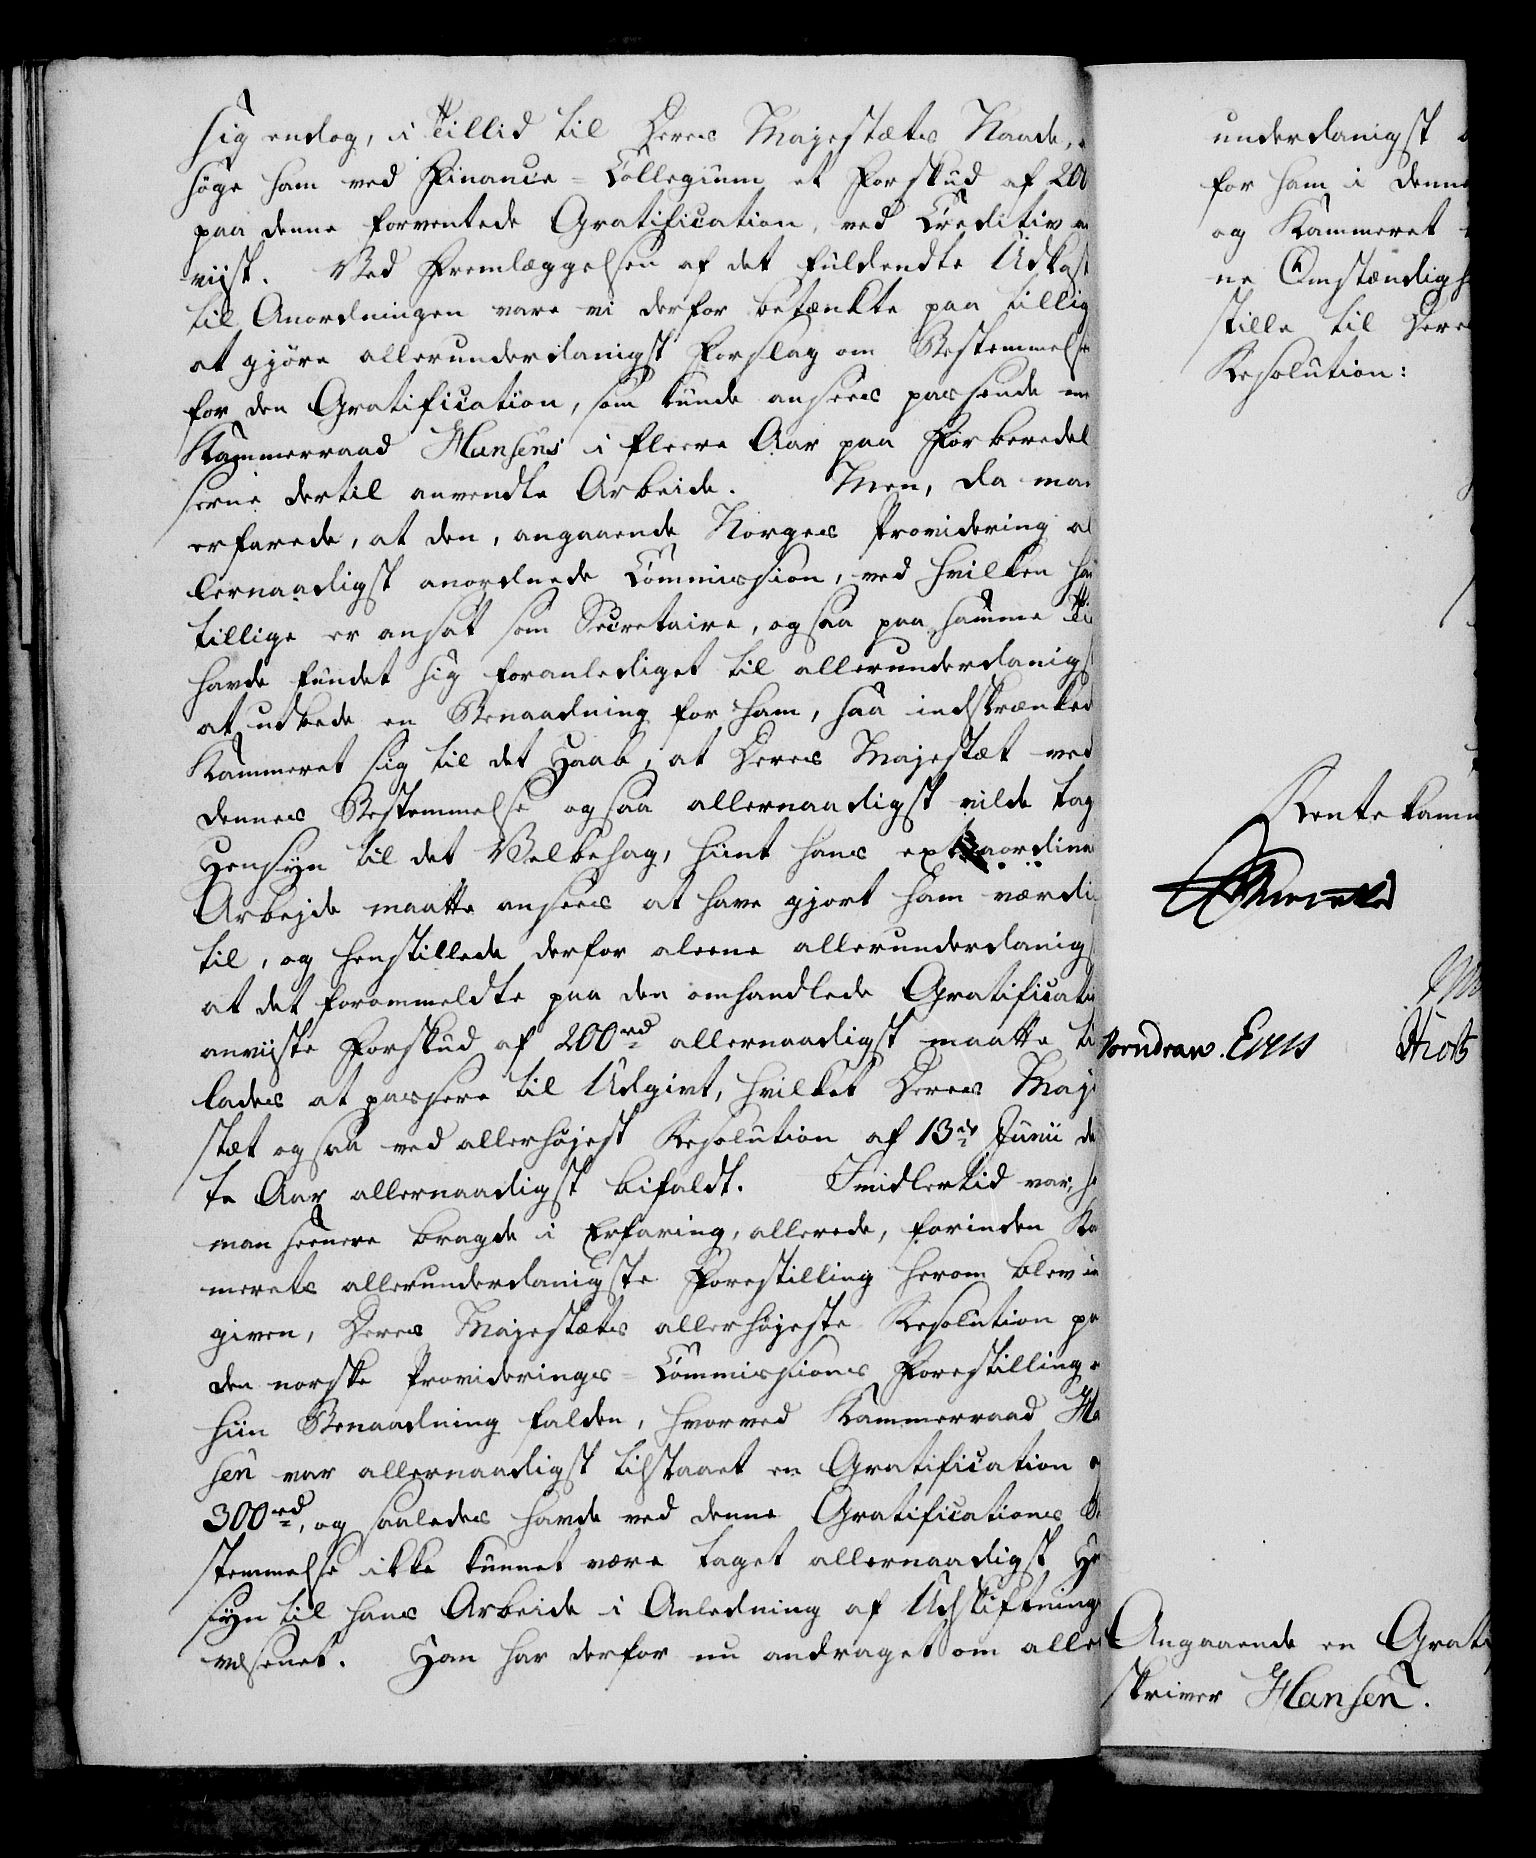 sig endog, i Tillid til Deres Majestæts Naade,
søge ham ved Finance-Collegium et Forskud af 200
paa denne forventede Gratification, ved Creditiv an
viist. Ved Fremlæggelsen af det fuldendte Udkast
til Anordningen vare vi derfor betænkte paa tillig
at gjøre allerunderdanigst Forslag om Bestemmelse
for den Gratification, som kunde ansees passende
Kammerraad Hansens i fleere Aar paa Forberedel
serne dertil anvendte Arbeide. Men, da man
erfarede, at den, angaaende Norges Providering al
lernaadigst anordnede Commission, ved hvilken han
tillige er ansat som Secretaire, ogsaa paa samme Ti
havde fundet sig foranlediget til allerunderdanigst
at udbede en Benaadning for ham, saa indskrænked
Kammeret sig til det Haab, at Deres Majestæt ved
dennes Bestemmelse ogsaa allernaadigst vilde tag
Hensyn til det Velbehag, hiint hans extraordinai
Arbejde maatte ansees at have gjort ham værdig
til, og henstillede derfor aleene allerunderdanigst
at det forommeldte paa den omhandlede Gratificatio
anviiste Forskud af 200 rd allernaadigst maatte til
lades at passere til Udgivt, hvilket Deres Maje
stæt ogsaa ved allerhøjest Resolution af 13de Junii det
te Aar allernaadigst bifaldt. Imidlertid var, h
man seenere bragde i Erfaring, allerede, forinden Ka
merets allerunderdanigste Forestilling herom blev in
given, Deres Majestæts allerhøjeste Resolution pa
den norske Providerings-Commissions Forestilling
hiin Benaadning falden, hvorved Kammerraad Ha
sen var allernaadigst tilstaaet en Gratification
300 rd, og saaledes havde ved denne Gratifications Be
stemmelse ikke kunnet være taget allernaadigst He
syn til hans Arbeide i Anledning af Udskiftnings
væsenet. Han har derfor nu andraget om alle
underdanigst
for ham i denne
og Kammeret
ne Omstændigh
stille til Dere
Resolution:
Rentekam
Angaaende en Grati
skriver Hansen.